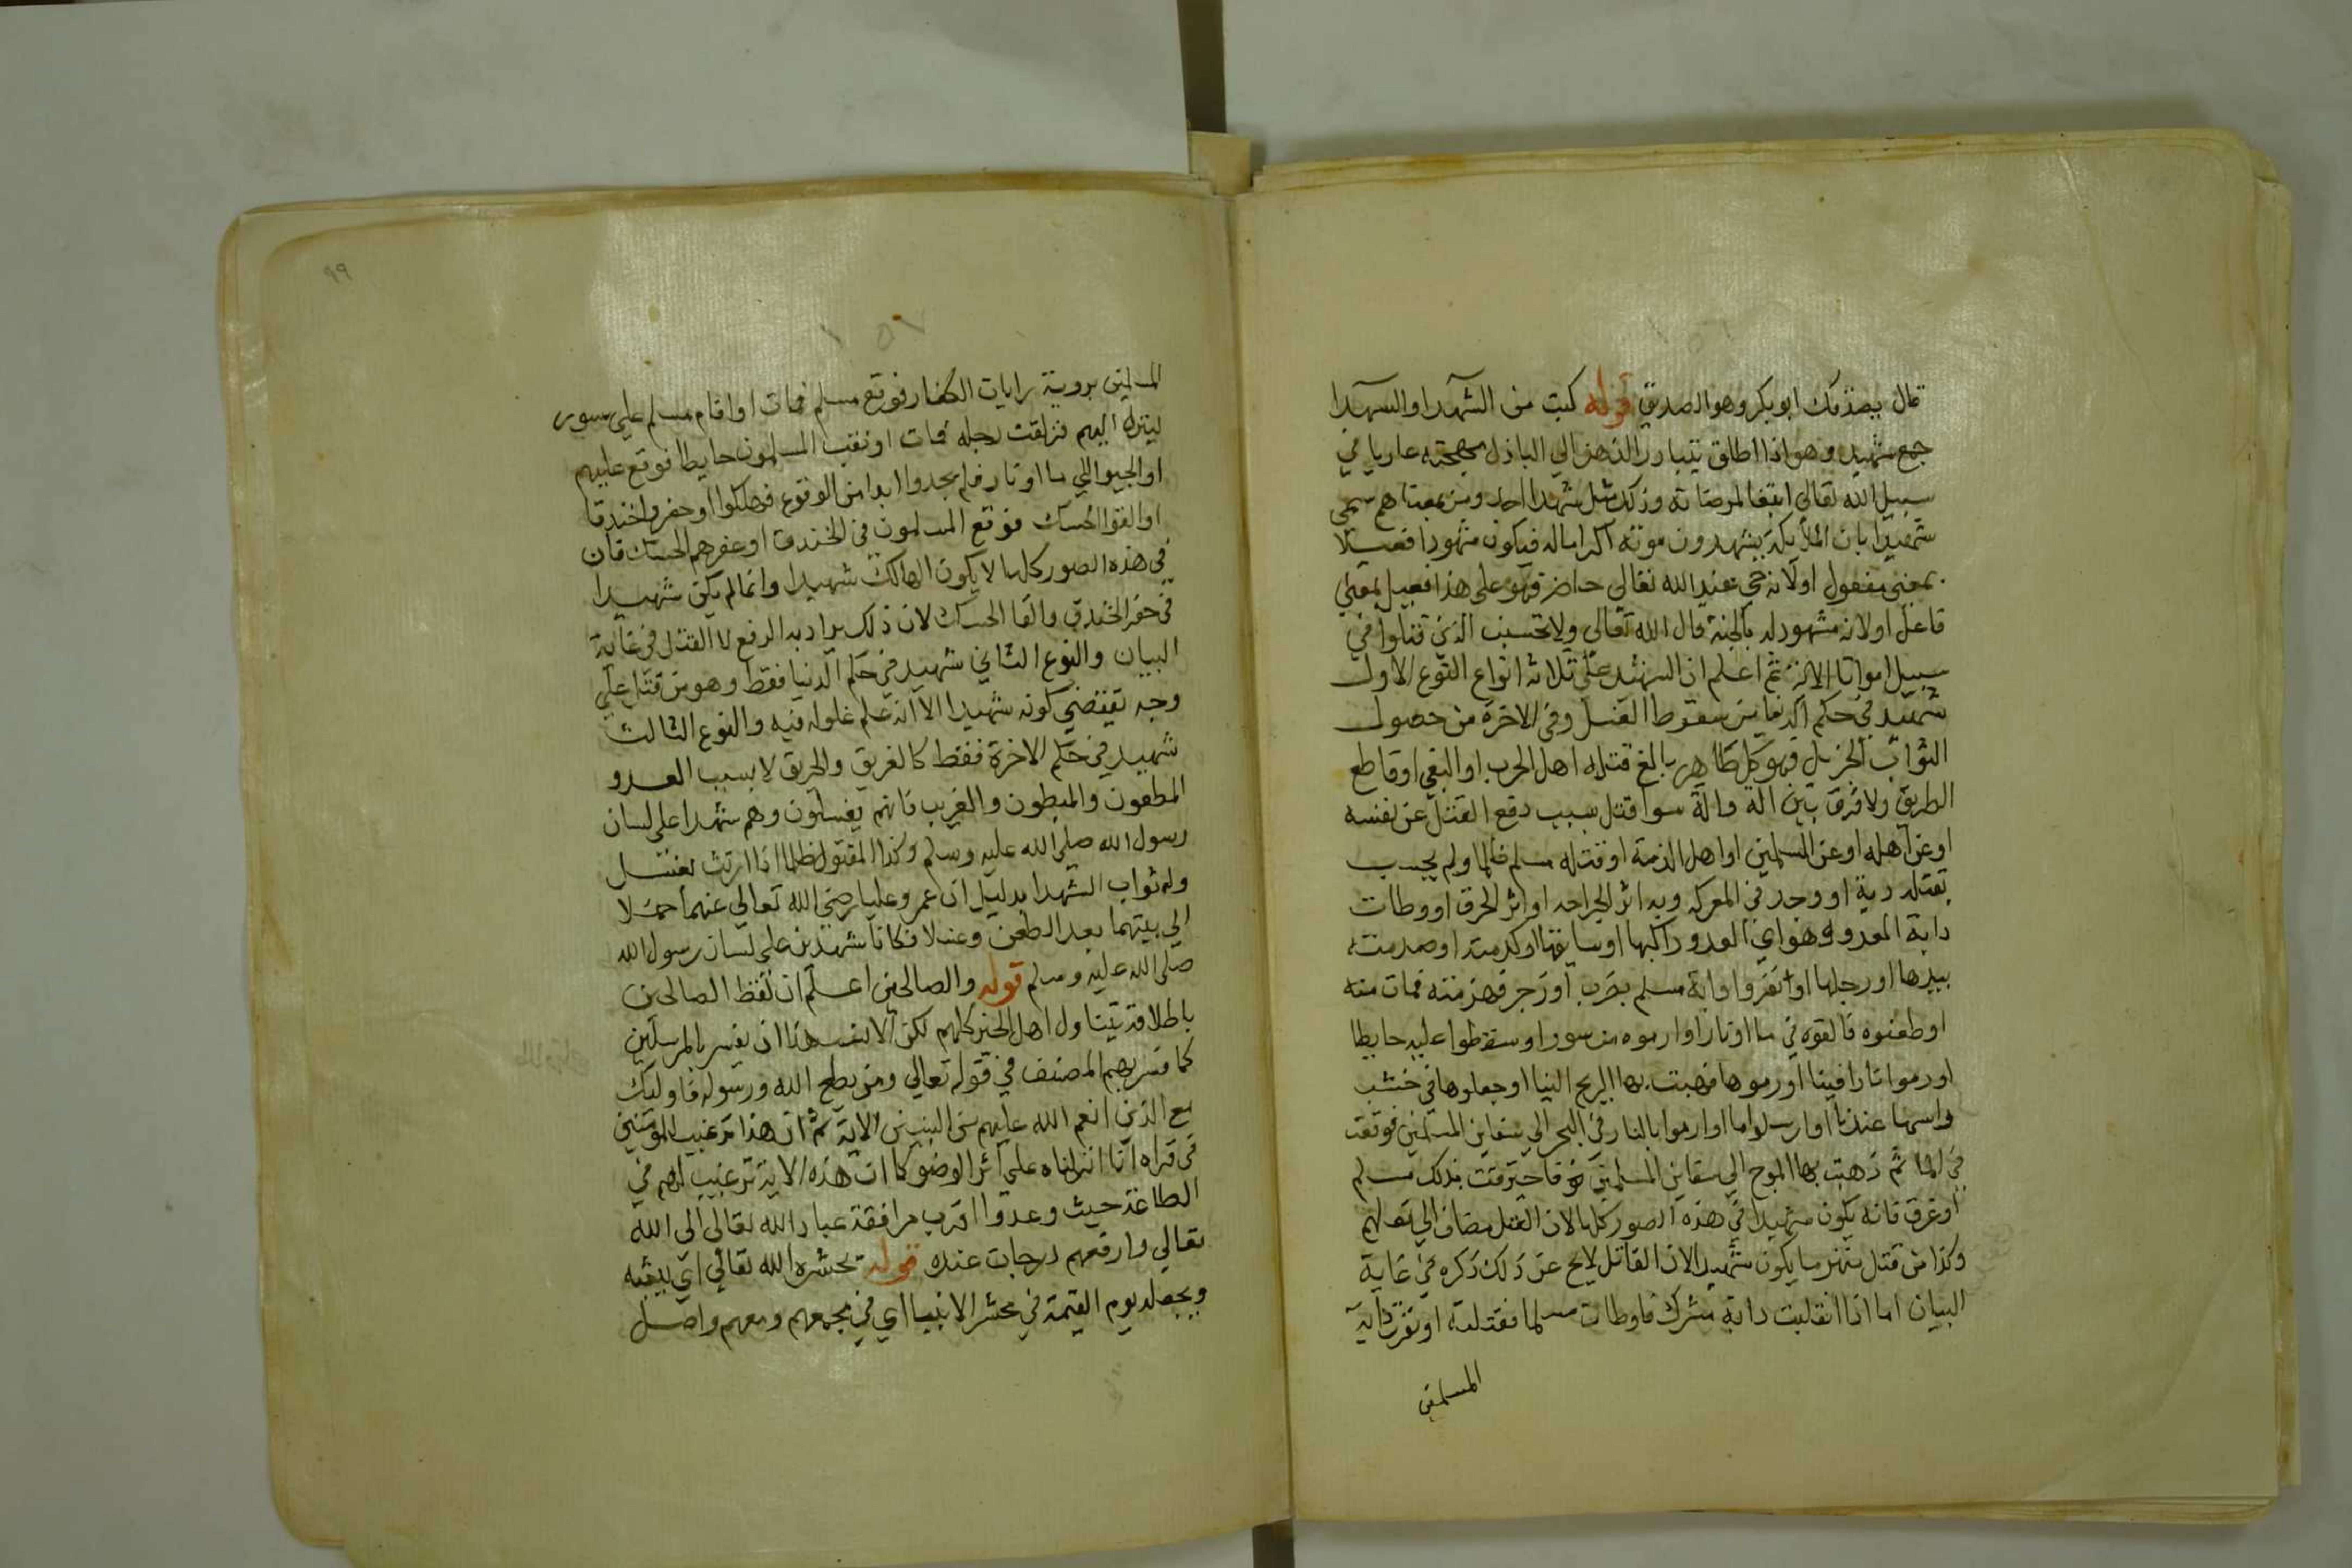 قال يصدقك ابو بكر وهو الصديق قوله كتب من الشهدا والشهدا
جمع شهيد وهو اذا اطلق يتبادر الذهن الي الباذل مهجته عاريا في
سبيل الله تعالي ابتغا لمرضاته وذلك مثل شهدا احد ومن بمعناهم سمي
شهيدا بان الملايكة يشهدون موته اكراما له فيكون مشهودا فعيلا
بمعني مفعول او لانه حي عند الله تعالي حاضر فهو علي هذا فعيل بمعني
فاعل او لانه مشهود له بالجنة قال الله تعالي ولا تحسبن الذين قتلوا في
سبيل امواتا الاية ثم اعلم ان الشهيد علي ثلاثة انواع النوع الاول
شهيد في حكم الدنيا من سقوط الغسل وفي الاخرة من حصول
الثواب الجزيل فهو كل طاهر بالغ قتله اهل الحرب او البغي او قاطع
الطريق ولا فرق بين الة والة سوا قتل بسبب دفع القتل عن نفسه
او عن اهله او عن المسلمين او اهل الذمة او قتله مسلم ظلما ولم يجب
بقتله دية او وجد في المعركه وبه اثر الجراحه او اثر الحرق او وطات
دابة العدو وهو اي العدو راكبها او سايقها او كدمته او صدمته
بيدها او رجلها او نفروا دابة مسلم بضرب او زجر فهزمته فمات منه
او طعنوه فالقوه في ما او نار او رموه من سور او سقطوا عليه حايطا
او رموا نارا فينا او رموها فهبت بها الريح الينا او جعلوها في خشب
واسمها عندنا او ارسلوا ما او رموا بالنار في البحر الي سفاين المسلمين فوقعت
في الما ثم ذهبت بها الموج الي سفاين المسلمين فاحترقت بذلك مسلم
او غرق فانه يكون شهيدا في هذه الصور كلها لان القتل مضاف الي فعلهم
وكذا من قتل يكون شهيدا لان القاتل ذلك ذكره في غاية
البيان اما اذا انفلتت دابة مشرك فاوطات مسلما فقتلته او نفرت دابة
المسلمين
٩٩
المسلمين بروية رايات الكفار فوقع مسلم فمات او اقام مسلم علي سور
لينزل اليهم فزلقت رجله فمات او نقب المسلمون حايطا فوقع عليهم
او الجيوا الي ما او نار فلم يجدوا بدا من الوقوع فهلكوا او حفروا خندقا
او القوا الحسك فوقع المسلمون في الخندق او عقرهم الحسك فان
في هذه الصور كلها لا يكون الهالك شهيدا وانما لم يكن شهيدا
في حفر الخندق والقا الحسك لان ذلك يراد به الدفع لا القتل في غاية
البيان والنوع الثاني شهيد في حكم الدنيا فقط وهو من قتل علي
وجه تقتضي كونه شهيدا الا انه علم غلوله فيه والنوع الثالث
شهيد في حكم الاخرة فقط كالغريق والحريق لا بسبب العدو
المطعون والمبطون والغريب فانهم يغسلون وهم شهدا علي لسان
رسول الله صلي الله عليه وسلم وكذا المقتول ظلما اذا ارتث يغسل
وله ثواب الشهدا بدليل ان عمر وعليا رضي الله تعالي عنهما حملا
الي بيتهما بعد الطعن وغسلا فكانا شهيدين علي لسان رسول الله
صلي الله عليه وسلم قوله والصالحين اعلم ان لفظ الصالحين
باطلاقه يتناول اهل الخير كلهم لكن الانسب هنا ان يفسر بالمرسلين
كما فسر بهم المصنف في قوله تعالي ومن يطع الله ورسوله فاوليك
مع الذين انعم الله عليهم من النبيين الاية ثم ان هذا ترغيب للمؤمنين
في قراه انا انزلناه علي اثر الوضو كما ان هذه الاية ترغيب لهم في
الطاعة حيث وعدوا اقرب مرافقة عباد الله تعالي الي الله
تعالي وارفعهم درجات عنده قوله تحشره الله تعالي اي يبعثه
ويجعله يوم القيمة في محشر الانبيا اي في مجمعهم ومعهم واصل